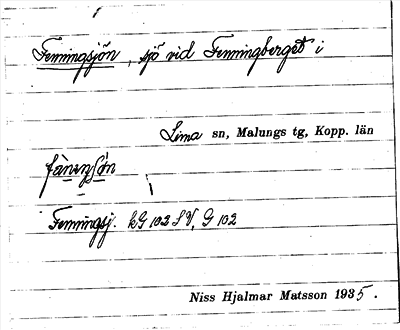 Femingsjön, sjö vid Femingberget i
Lima sn, Malungs tg, Kopp. län
Femingsj. kG 102 SV, G 102
Niss Hjalmar Matsson 1935.